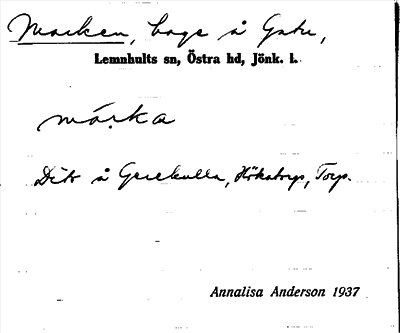 Marken, hage å Gate,
Lemnhults sn, Östra hd, Jönk. l.
márka
Dito å Grekulla, Hökatorp, Torp.
Annalisa Anderson 1937